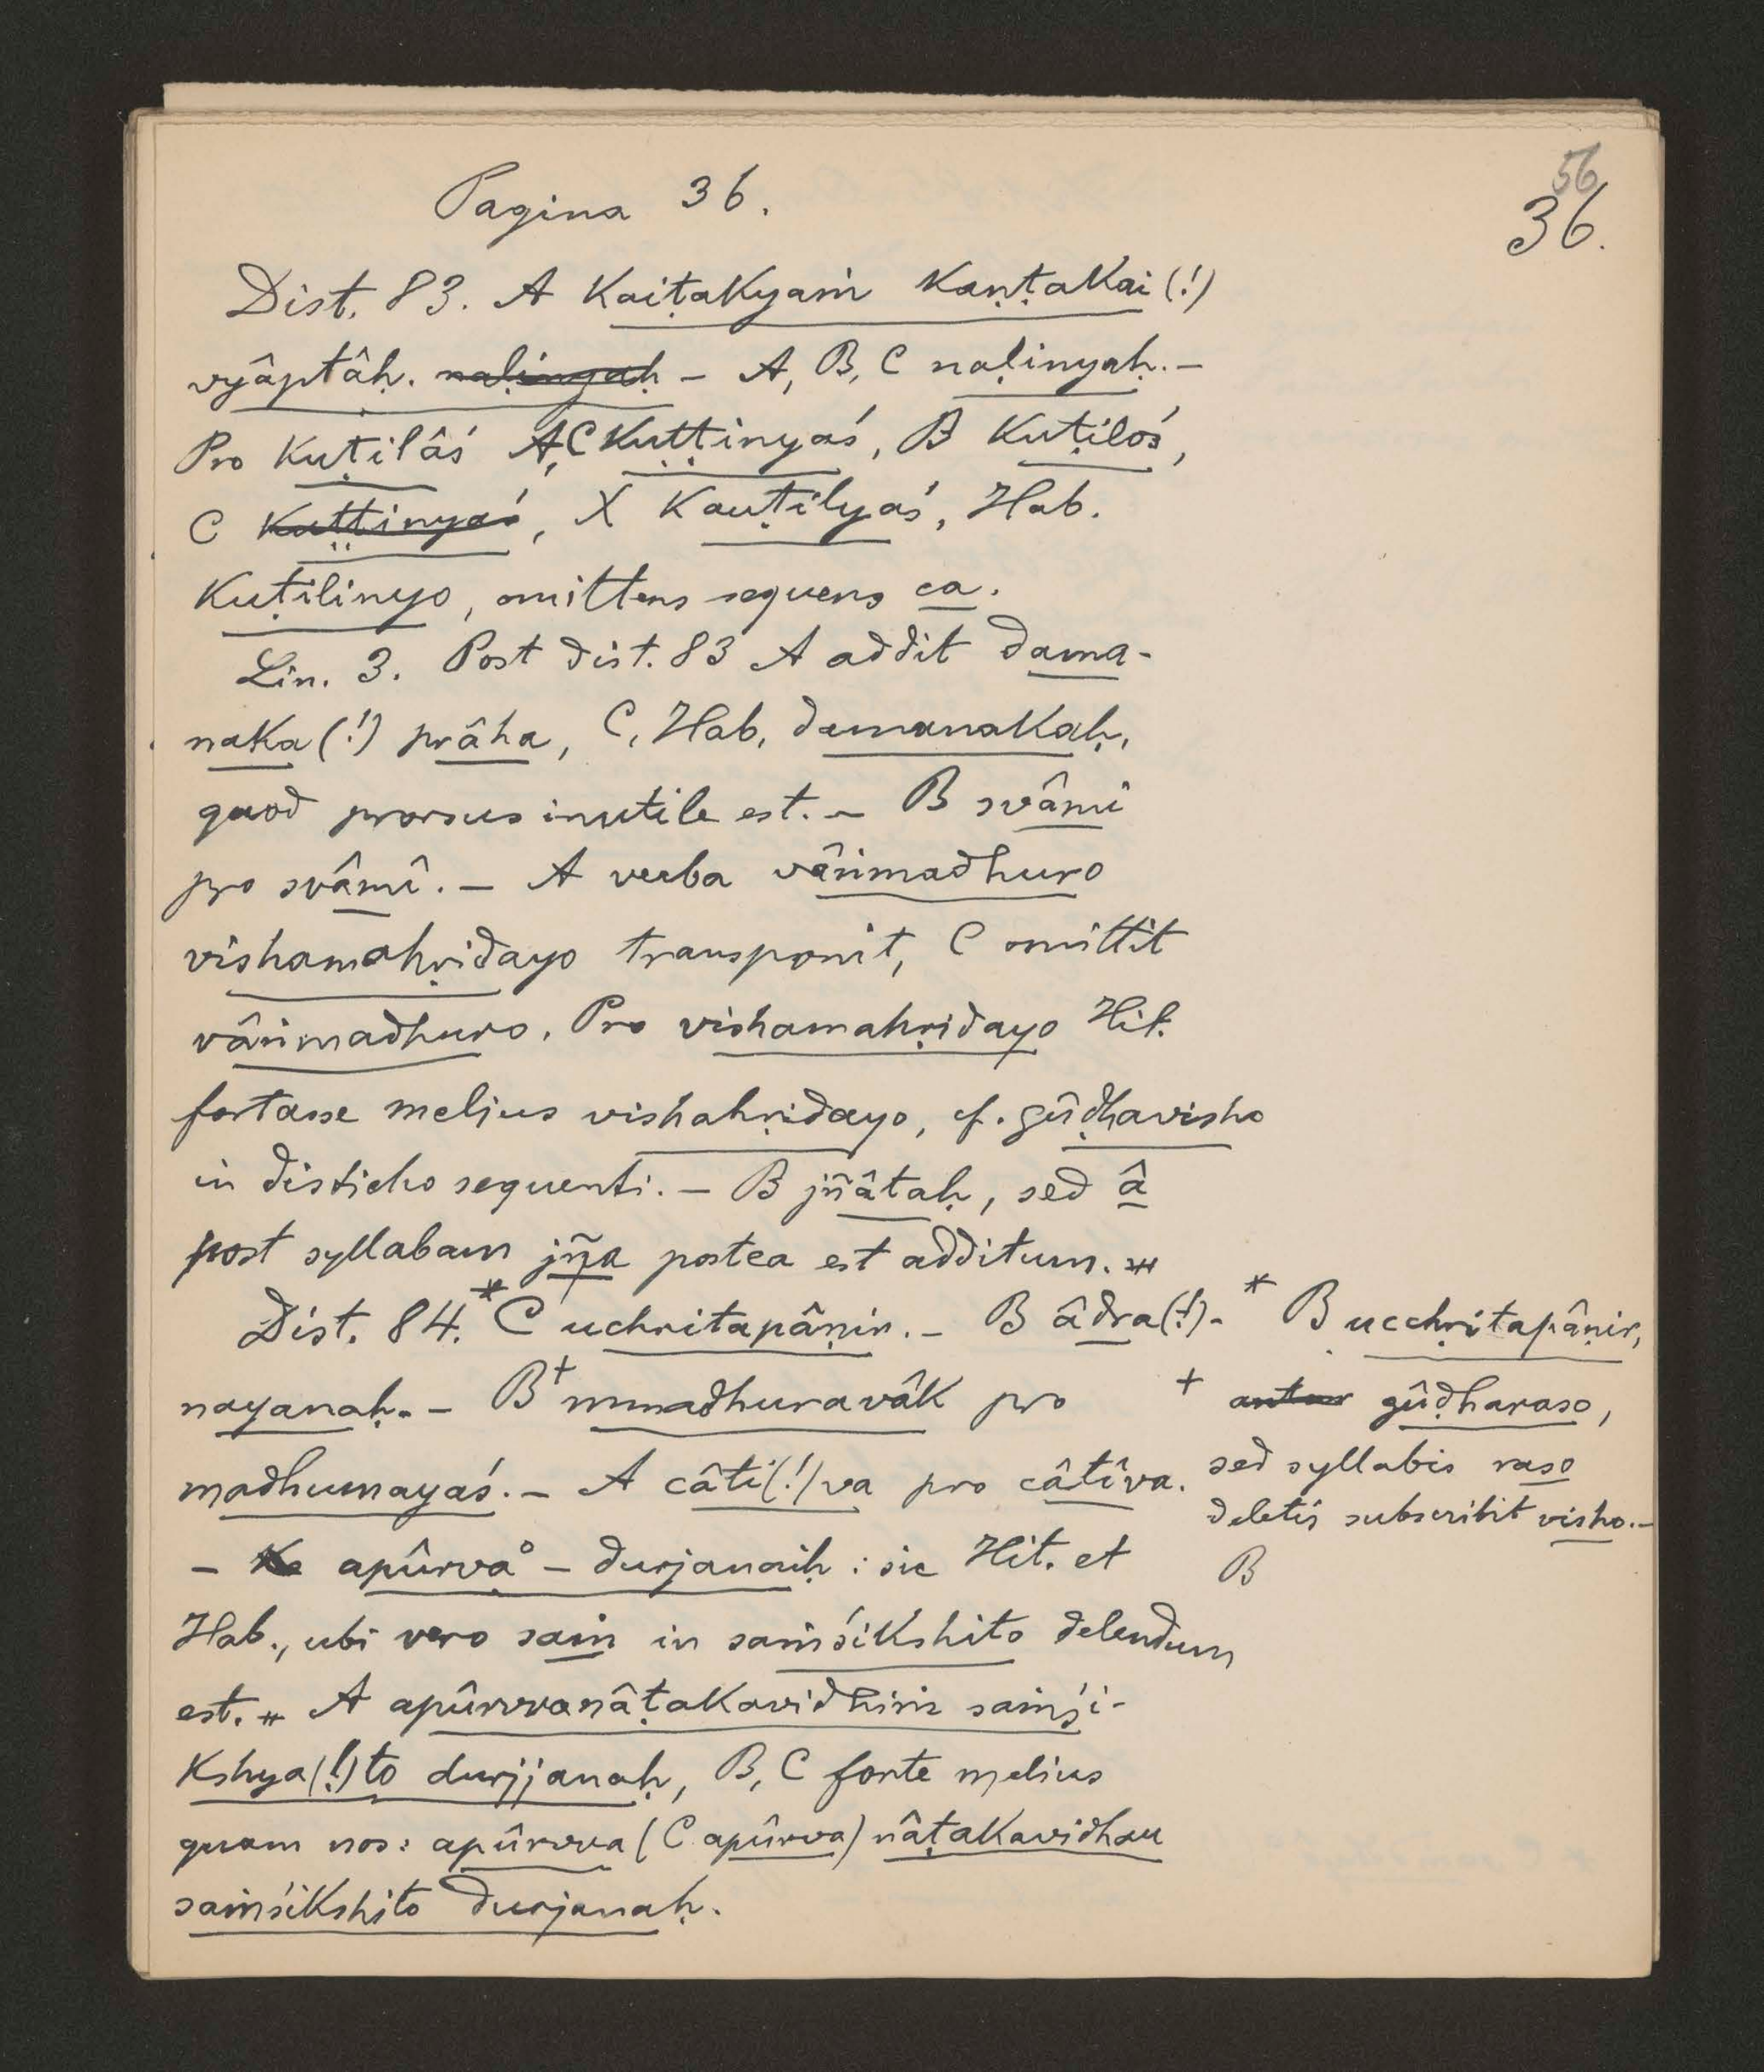 56
36.
Pagina 36.
Dist. 83. A kaiṭakyaṁ kaṇṭakai (!)
vyâptâḥ. naḷinyaḥ – A, B, C naḷinyaḥ. –
Pro kuṭilâś A, C kuṭṭinyaś, B kuṭiloś,
C kuṭṭinyaś, X kauṭilyaś, Hab.
kuṭilinyo, omittens sequens ca.
Lin. 3. Post dist. 83 A addit dama-
naka (!) prâha, C, Hab. damanakaḥ,
quod prorsus inutile est. – B svâmi
pro svâmî. – A verba vârimadhuro
vishamahṛidayo transponit, C omittit
vârimadhuro. Pro vishamahṛidayo Hit.
fortasse melius vishahṛidayo, cf. gûḍhavisho
in disticho sequenti. – B jñâtaḥ, sed â
post syllabam jña postea est additum. –
Dist. 84. * C uchritapâṇir. – B âdra (!) -
nayanaḥ. – B + mmadhuravâk pro
madhumayaś. – A câti (!) va pro câtîva.
– apûrva° – durjanaiḥ : sic Hit. et
Hab., ubi vero saṁ in saṁśikshito delendum
est. – A apûrvvanâṭakavidhiṁ saṁśi-
kshya (!) to durjjanaḥ, B, C forte melius
quam nos: apûrvva (C apûrva) nâṭakavidhau
saṁśikshito durjanaḥ.
* B ucchṛitapâṇir,
+ antar gûḍharaso,
sed syllabis raso
deletis subscribit visho. –
B